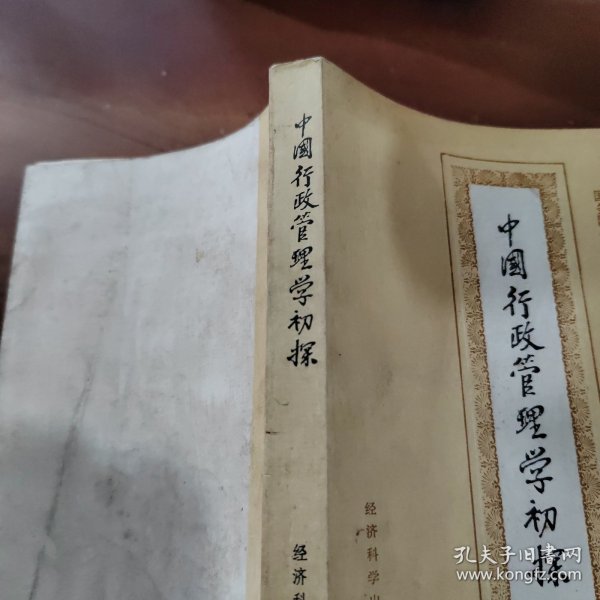 中国行政管理学初探
经济科
中国行政管理学初探
经济科学出
孔夫子旧书网
www.kongfz.com